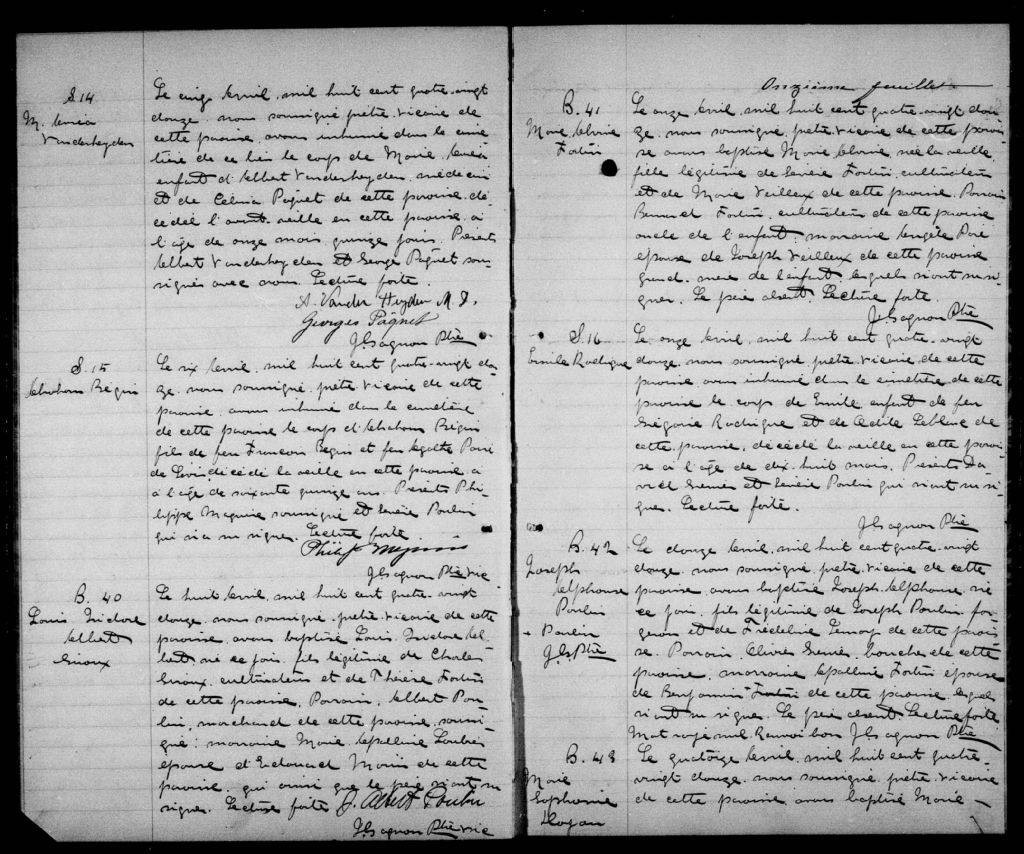 S. 14
M.
Vanderheyden
Le cinq Avril, mil huit cent quatre-vingt
douze, nous soussigné prêtre vicaire de
cette paroisse, avons inhumé dans le cime
tière de ce lieu le corps de Marie
enfant d'Albert Vanderheyden, médecin
et de Célina Paquet de cette paroisse, dé-
cédée l'avant-veille en cette paroisse, à
l'âge de onze mois, quinze jours. Présents
Albert Vanderheyden et George Paquet sous-
signés avec nous. Lecture faite.
A. Vander Heyden M.D.
Georges Pâquet
J. Gagnon Ptre
S. 15
Abraham Bégin
Le six Avril, mil huit cent quatre-vingt dou-
ze, nous soussigné, prêtre vicaire de cette
paroisse, avons inhumé dans le cimetière
de cette paroisse le corps d'Abraham Bégin
fils de feu François Begin et feu Agathe Paré
de Levis, décédé la veille en cette paroisse à
à l'âge de soixante quinze ans. Présents Phi-
lippe Maguire soussigné et Poulin
qui n'a su signer. Lecture faite.
Philip
J. Gagnon Ptre Vic
B. 40
Louis Isidore
Albert
Giroux
Le huit Avril, mil huit cent quatre-vingt
douze, nous soussigné, prêtre vicaire de cette
paroisse, avons baptisé Louis Isidore Al-
bert né ce jour, fils légitime de Charles
Giroux, cultivateur et de Thérèse Fortin
de cette paroisse, Parrain, Albert Pou-
lin, marchand de cette paroisse, soussi-
gné; marraine Marie Appolline Loubier
épouse d'Edouard Morin de cette
paroisse, qui ainsi que le père n'ont su
signer. Lecture faite J. Albert Poulin
J. Gagnon Ptre Vic
Onzième feuillet
B. 41
Marie
Fortin
Le onze Avril, mil huit cent quatre-vingt dou-
ze, nous soussigné, prêtre, vicaire de cette parois
se avons baptisé Marie née la veille,
fille légitime de Fortin, cultivateur
et de Marie Veilleux de cette paroisse. Parrain
Bernard Fortin, cultivateur de cette paroisse
oncle de l'enfant; marraine Angèle Paré
épouse de Joseph Veilleux de cette paroisse
grand-mère de l'enfant, lesquels n'ont su si-
gner. Le père absent. Lecture faite.
J. Gagnon Ptre
S. 16
Emile Rodrigue
Le onze Avril, mil huit cent quatre-vingt
douze, nous soussigné, prêtre vicaire de cette
paroisse, avons inhumé dans le cimetière de cette
paroisse le corps de Emile enfant de feu
Grégoire Rodrigue et de Leblanc de
cette paroisse, décédé la veille en cette parois-
se à l'âge de dix-huit mois. Présents Da-
vid et Poulin qui n'ont su si-
gner. Lecture faite.
J. Gagnon Ptre
B. 42
Joseph
Alphonse
Poulin
Poulin
J. G. Ptre
Le douze Avril, mil huit cent quatre-vingt
douze, nous soussigné, prêtre, vicaire de cette
paroisse, avons baptisé Joseph Alphonse, né
ce jour, fils légitime de Joseph Poulin, for-
geron et de de cette parois
se. Parrain, Olivier boucher de cette
paroisse, marraine Appolline Fortin épouse
de Benjamin Fortin de cette paroisse, lesquels
n'ont su signer. Le père absent Lecture faite
Mot rayé nul Renvoi bon J. Gagnon Ptre
B. 43
Marie
Sophronie
Le quatorze Avril, mil huit cent quatre-
vingt douze, nous soussigné, prêtre, vicaire
de cette paroisse avons baptisé Marie